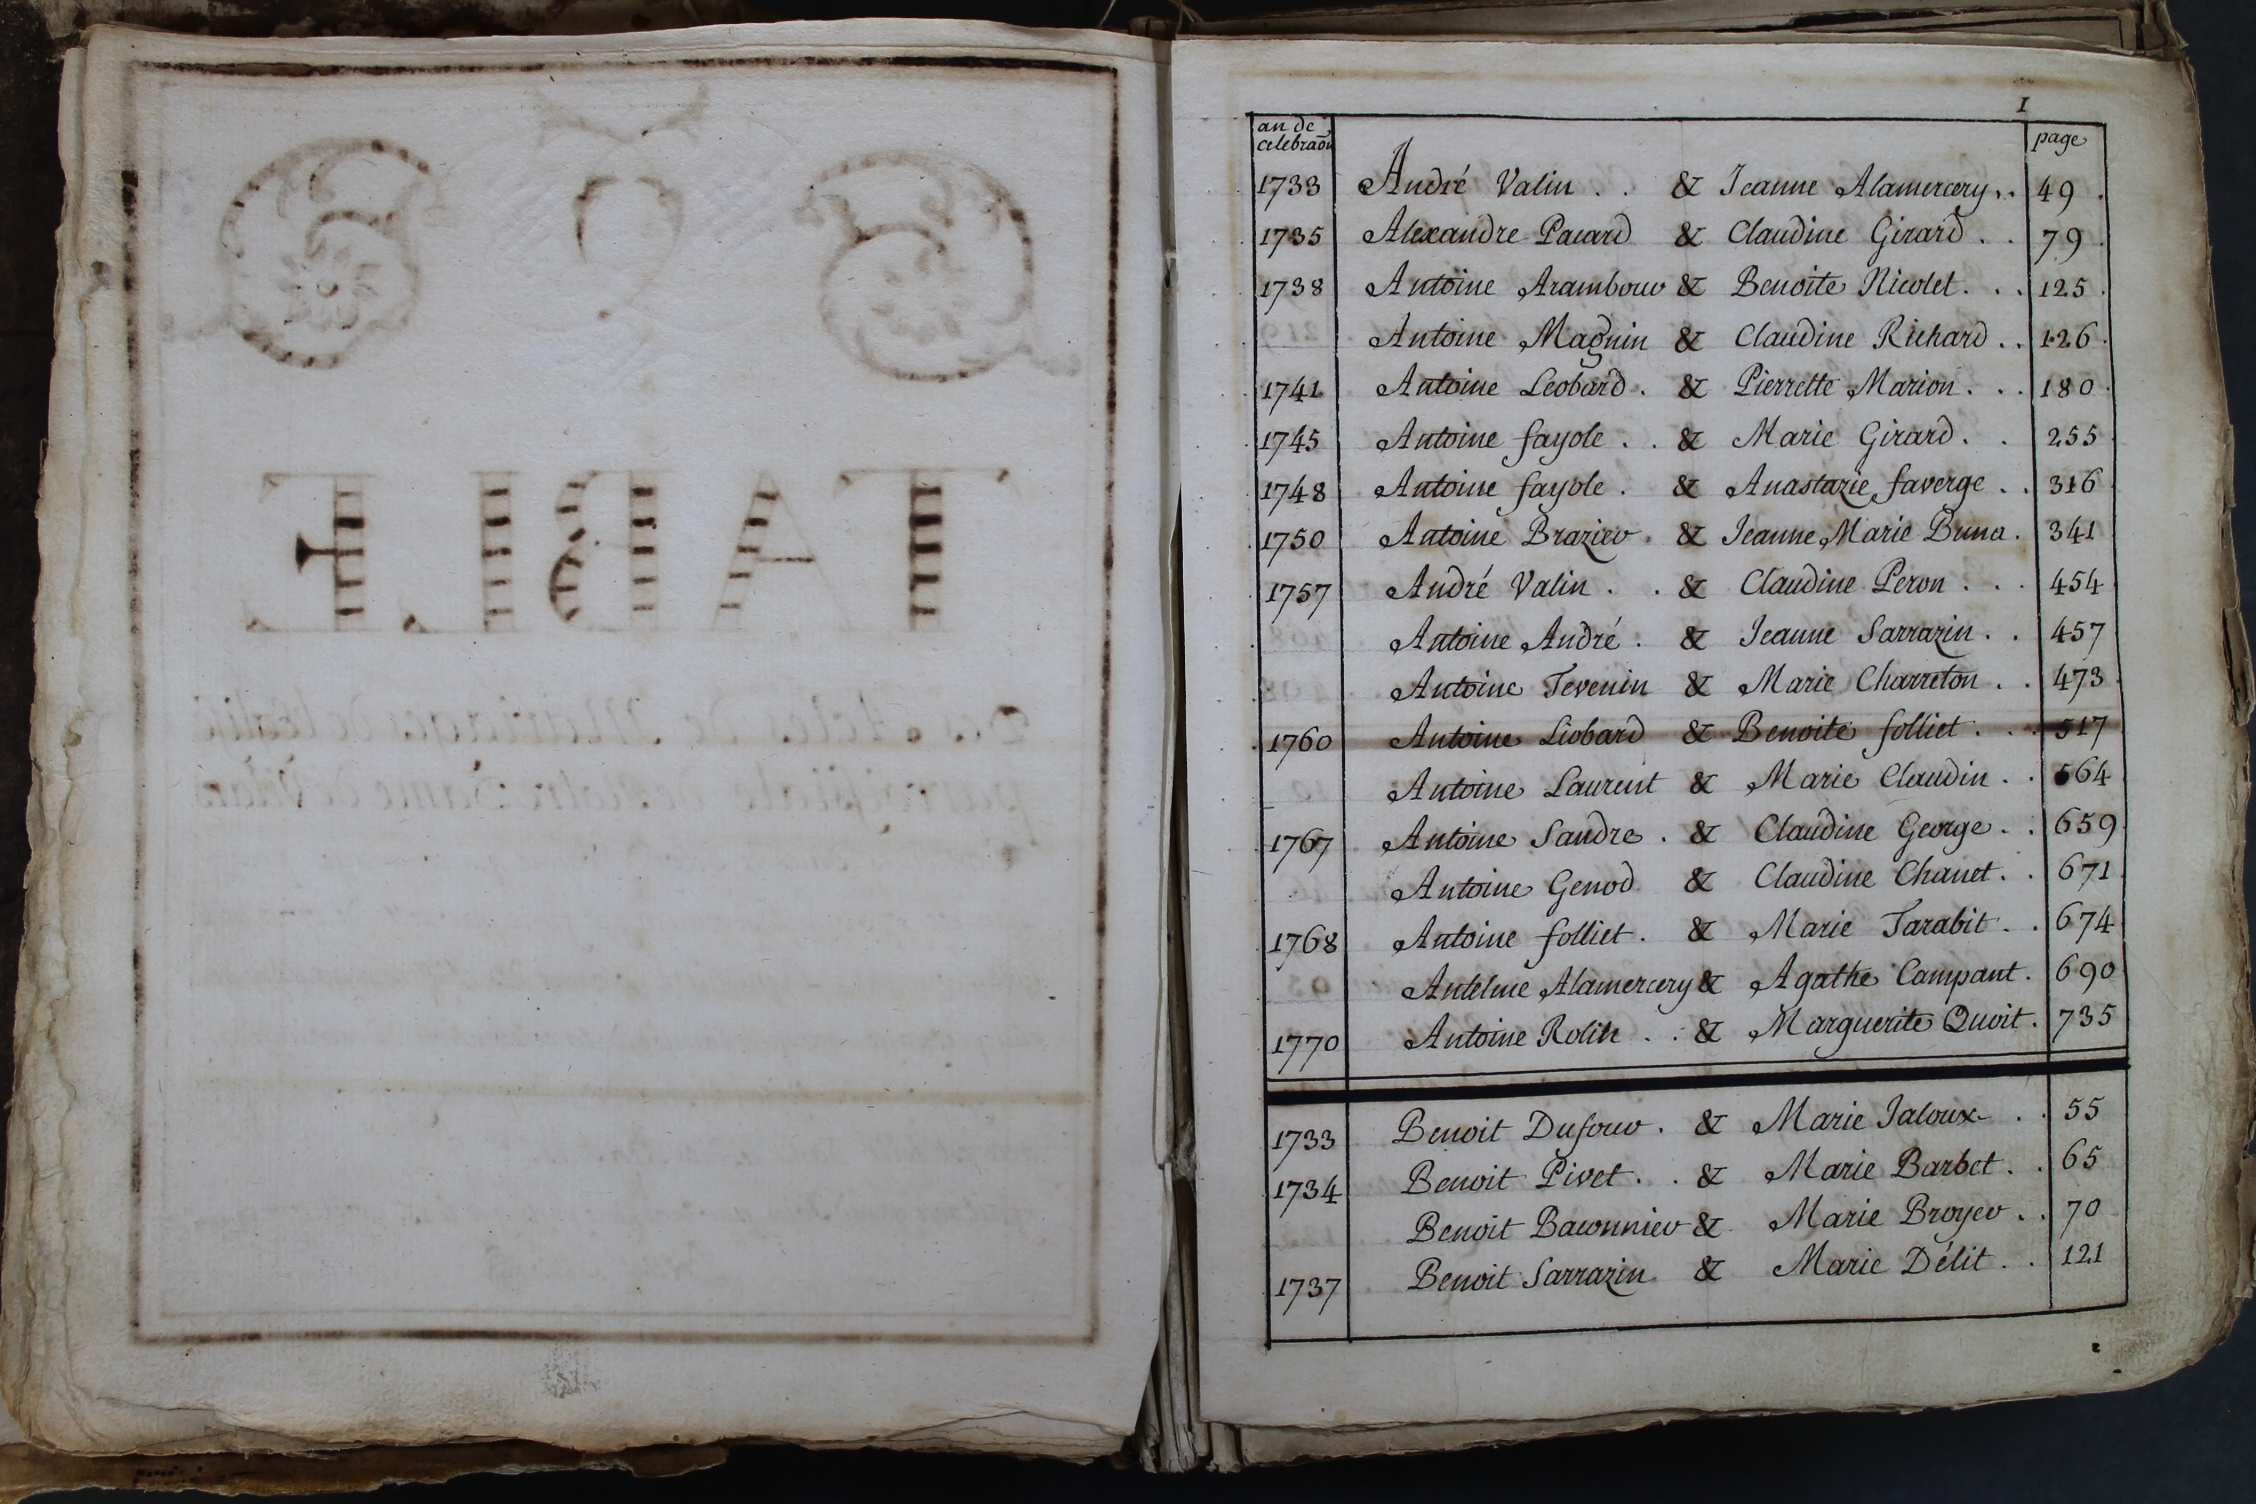 TABLE
I
an de page
celebraõn
1733 André Valin . . & Jeanne Alamercery . . 49 .
1735 Alexandre Pacard & Claudine Girard . . 79 .
1738 Antoine Arambour & Benoite Nicolet . . . 125 .
Antoine Magnin & Claudine Richard . . 126 .
1741 Antoine Leobard . & Pierrette Marion . . . 180 .
1745 Antoine fayole . . & Marie Girard . . 255
1748 Antoine fayole . & Anastazie faverge . . 316
1750 Antoine Brazier . & Jeanne Marie Buna . 341
1757 André Valin . . & Claudine Peron . . . 454
Antoine André . & Jeanne Sarrazin . . 457
Antoine Tevenin & Marie Charreton . . 473
1760 Antoine Liobard & Benoite folliet . . . 517
Antoine Laurent & Marie Claudin . . 564
1767 Antoine Sandre . & Claudine George . . 659
Antoine Genod & Claudine Chanet . . 671
1768 Antoine folliet . & Marie Tarabit . . 674
Antelme Alamercery & Agathe Campant . 690
1770 Antoine Rolin . . & Marguerite Quoit . 735
1733 Benoit Dufour . & Marie Jaloux . . 55
1734 Benoit Pivet . . & Marie Barbet . . 65
Benoit Baconnier & Marie Broyer . . 70
1737 Benoit Sarrazin & Marie Délit . . 121